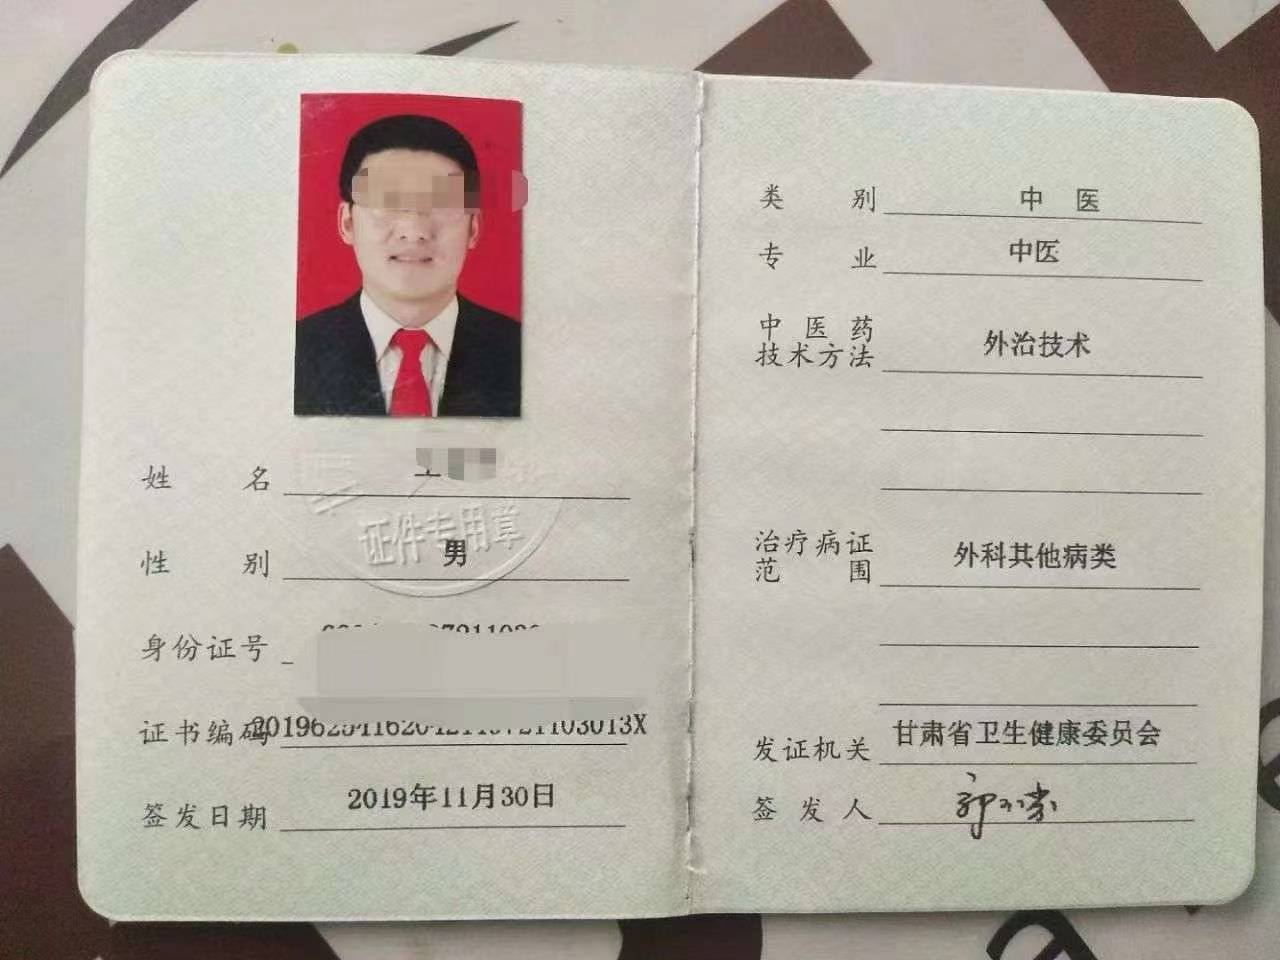 姓 名
证件专用章
性 别 男
身份证号
证书编码
签发日期 2019年11月30日
类 别 中 医
专 业 中医
中医药
技术方法 外治技术
治疗病证
范 围 外科其他病类
发证机关 甘肃省卫生健康委员会
签发人